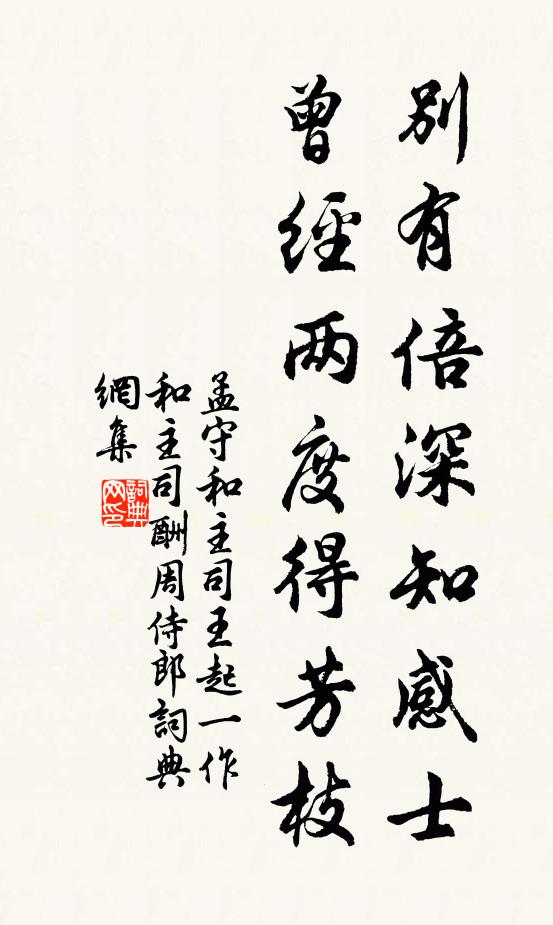 別有倍深知感士
曾經两度得芳枝
孟守和主司王起一作
和主司酬周侍郎詞典
網集
詞典網印